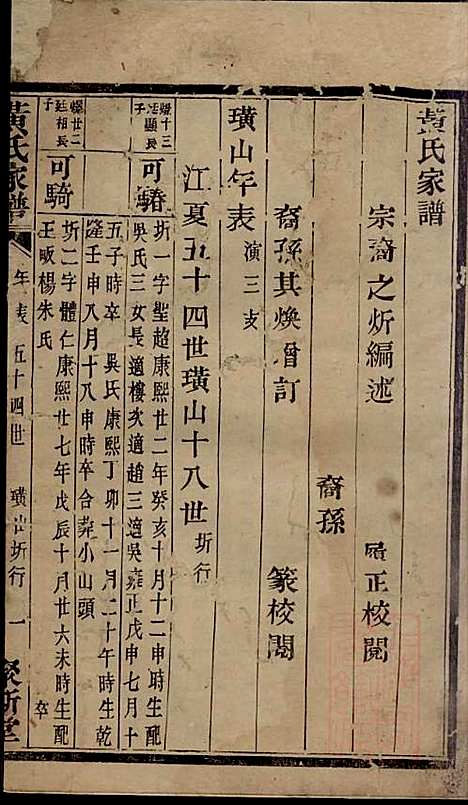 黃氏家譜
宗裔之炘編述
裔孫
正校閱
裔孫其煥增訂
篆校閱
璜山年表 演三支
江夏五十四世璜山十八世 圻行
爆十三
廷顯長
子
可騎
圻一字聖超康熙廿二年癸亥十月十二申時生配
吳氏三女長適樓次適趙三適吳雍正戊申七月十
五子時卒 吳氏康熙丁卯十一月二十午時生乾
隆壬申八月十八申時卒合葬小山頭
爆廿二
廷相長
子
可騎
圻二字體仁康熙廿七年戊辰十月廿六未時生配
王畈楊朱氏 卒
黃氏家譜 年表 五十四世 璜山圻行 一